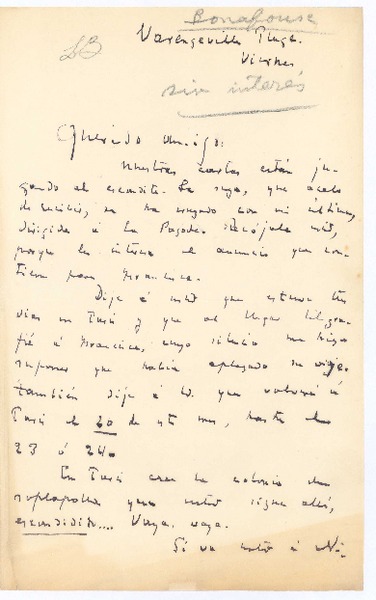 Bonafoux
LB
Varengeville Plage.
Viernes
sin interés
Querido amigo:
Nuestras cartas están ju-
gando al escondite. La suya, que acabo
de recibir, se ha cruzado con mi última,
dirigida á la Pagode. Recójala usted,
porque le interesa el anuncio que con-
tiene para Francisca.
Dije á usted que estuve tres
días en París y que al llegar telegra-
fié á Francisca, cuyo silencio me hizo
suponer que había aplazado su viaje.
También dije á V. que volveré á
París el 20 de este mes, hasta el
23 ó 24.
En París cree la colonia de
soplapollas que usted sigue allí,
escondidito.... Vaya, vaya.
Si va usted á